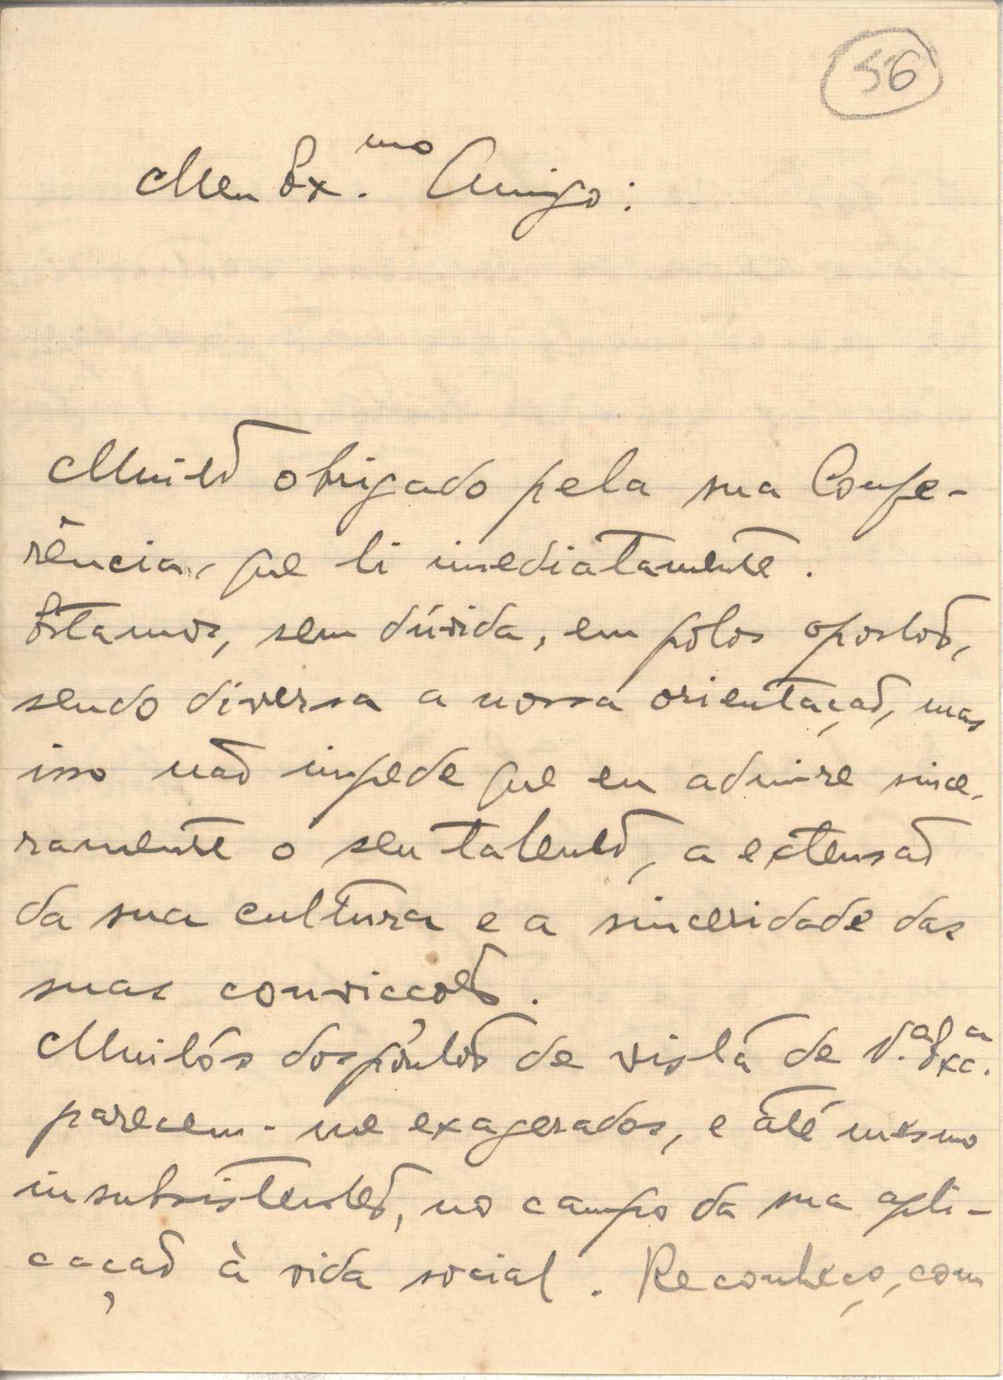 56
Meu Ex.mo Amigo:
Muito obrigado pela sua Confe-
rência, que li imediatamente.
Estamos, sem dúvida, em pólos opostos,
sendo diversa a nossa orientação, mas
isso não impede que eu admire since-
ramente o seu talento, a extensão
da sua cultura e a sinceridade das
suas convicções.
Muitos dos pontos de vista de V.a Exc.a
parecem-me exagerados, e até mesmo
insubsistentes, no campo da sua apli-
cação à vida social. Reconheço, com